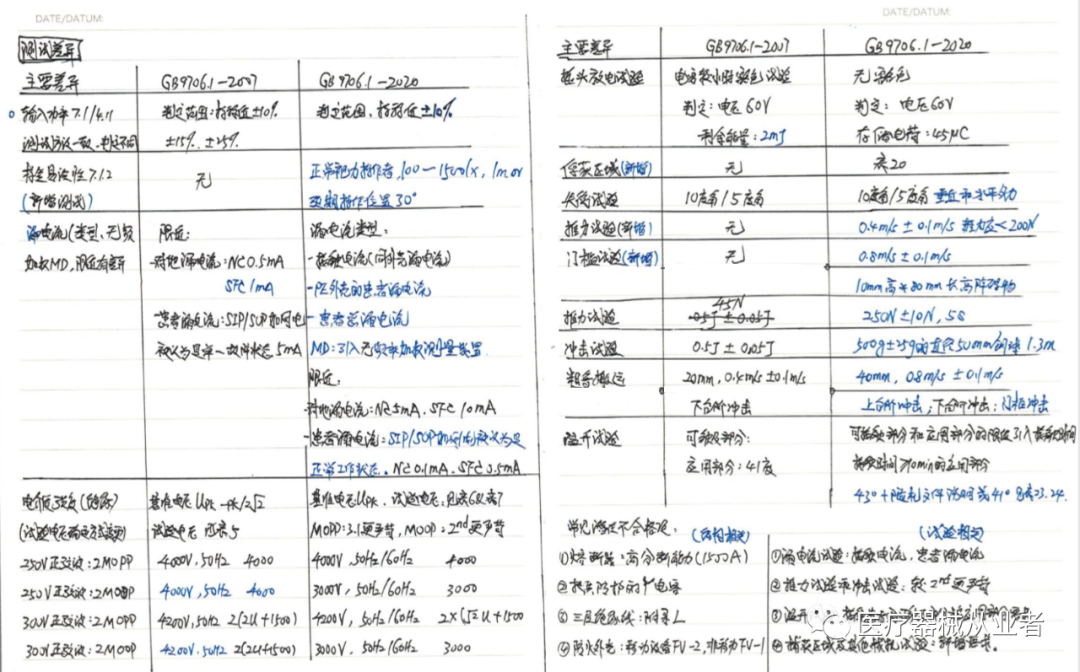 DATE/DATUM:
测试差异
主要差异 GB9706.1-2007 GB9706.1-2020
输入功率7.1/4.11 判定范围:标称值±10% 判定范围、标称值±10%
测试方法一致、判定不同 ±15%、±25%
标签易读性7.1.2 无 正常视力操作者,100-1500lx,1m or
(新增测试) 预期操作位置30°
漏电流(类型、无频 限值: 漏电流类型:
加权MD,限值有差异 -对地漏电流:NC 0.5mA -接触电流(同外壳漏电流)
SFC 1mA -PE外壳的患者漏电流
-患者漏电流:SIP/SOP加网电 -患者总漏电流
被认为是单一故障状态 5mA MD:引入无频率加权测量装置
限值:
-对地漏电流:NC 5mA、SFC 10mA
-患者漏电流:SIP/SOP加网电被认为是
正常工作状态。NC 0.1mA、SFC 0.5mA
电介质强度 基准电压 Upk 基准电压Upk、试验电压:见表6(表7)
试验电压 见表5 MOPP:3.1更严苛,MOOP:2nd更严苛
250V正弦波:2MOPP 4000V,50Hz 4000 4000V,50Hz/60Hz 4000
250V正弦波:2MOOP 4000V,50Hz 4000 3000V,50Hz/60Hz 3000
300V正弦波:2MOPP 4200V,50Hz 2(2U+1500) 4200V,50Hz/60Hz 2×(√2U+1500
300V正弦波:2MOOP 4200V.50Hz 2(2U+1500) 3000V,50Hz/60Hz 3000
DATE/DATUM:
主要差异 GB9706.1-2007 GB9706.1-2020
插头放电试验 无
判定:电压60V 判定:电压60V
剩余能量:2mJ 存储电荷:45μC
俘获区域(新增) 无 表20
失衡试验 10度角/5度角 10度角/5度角 垂直和水平力
推力试验(新增) 无 0.4m/s±0.1m/s 推力应<200N
门槛试验(新增) 无 0.8m/s±0.1m/s
10mm高*80mm长障碍物
推力试验 45N 250N±10N,5S
冲击试验 0.5J±0.05J 500g±25g的直径50mm钢球1.3m
粗鲁搬运 20mm,0.4m/s±0.1m/s 40mm,0.8m/s±0.1m/s
下台阶冲击 上台阶冲击;下台阶冲击;门框冲击
温升试验 可触及部分: 可触及部分和应用部分的限值引入接触时间
应用部分:41度 接触时间>10min的应用部分
43°+随机文件说明或41° 见表23.24.
常见测试不合格项:(结构相关) (试验相关)
①熔断器:高分断能力(1500A) ①漏电流试验:接触电流,患者漏电流
②插头防护的Y电容 ②推力试验和冲击试验:较2nd更严苛
③三层绝缘线:附录L ③温升
④防火外壳:移动设备FV-2,非移动FV-1 ④俘获区域及其他机械试验:新增要求。
医疗器械从业者